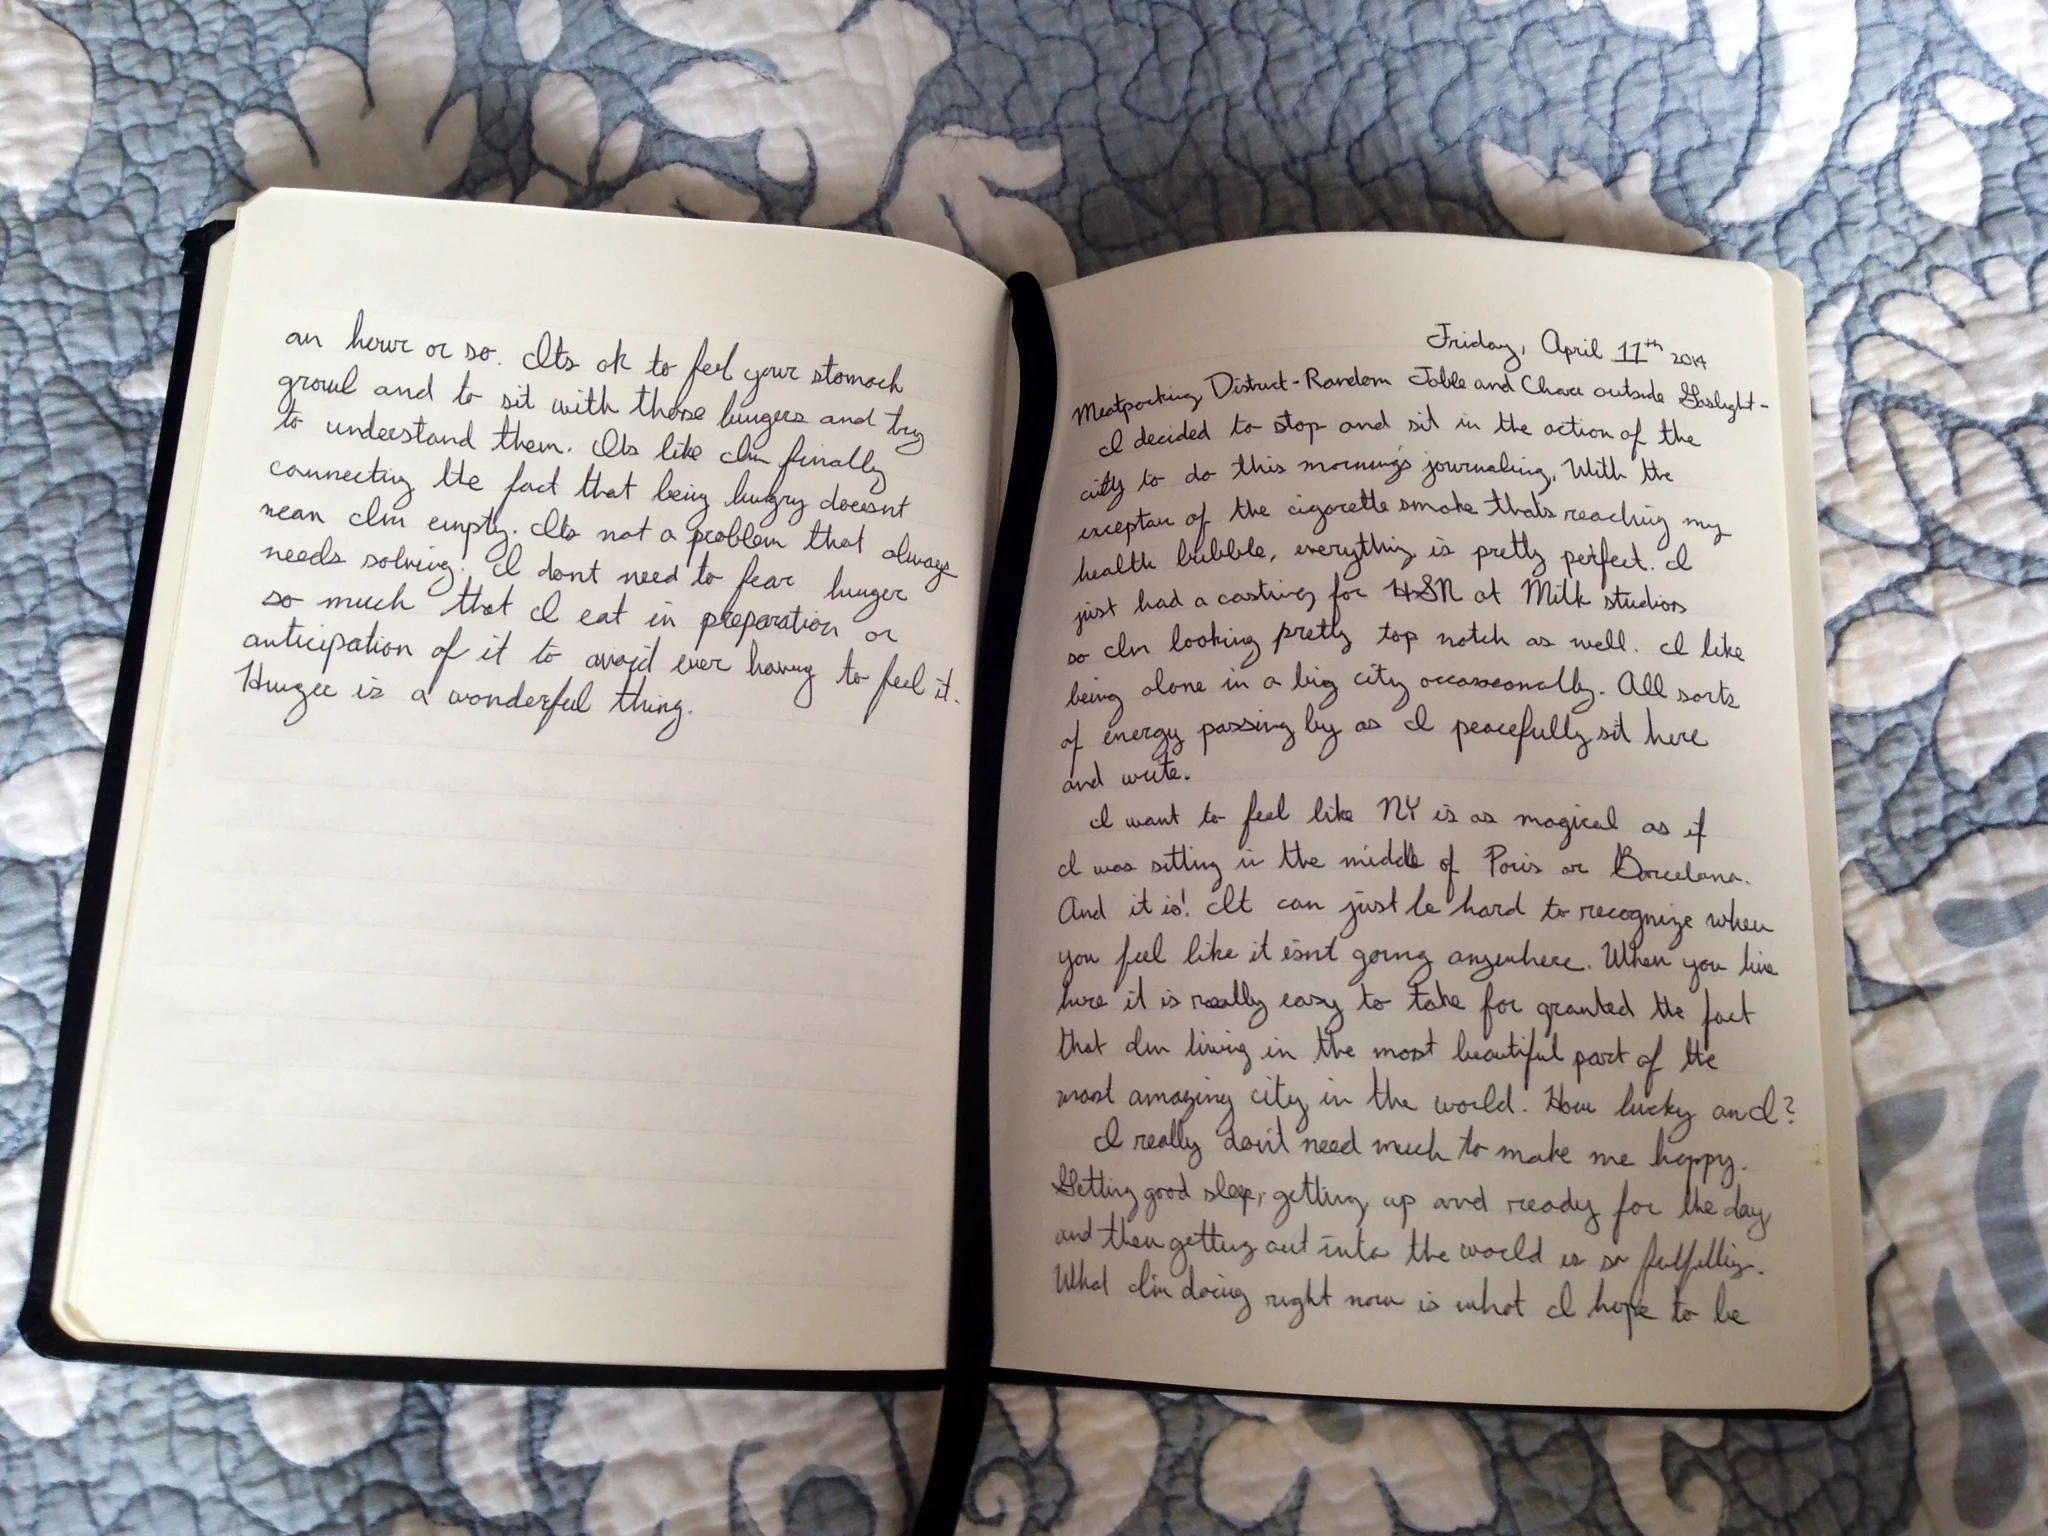 an hour or so. Its ok to feel your stomach
growl and to sit with those hungers and try
to understand them. Its like Im finally
connecting the fact that being hungry doesnt
mean Im empty. Its not a problem that always
needs solving. I dont need to fear hunger
so much that I eat in preparation or
anticipation of it to avoid ever having to feel it.
Hunger is a wonderful thing.
Friday, April 11th 2014
Meatpacking District - Random Table and Chair outside Gaslight -
I decided to stop and sit in the action of the
city to do this morning's journaling. With the
exception of the cigarette smoke thats reaching my
health bubble, everything is pretty perfect. I
just had a casting for HSN at Milk studios
so Im looking pretty top notch as well. I like
being alone in a big city occasionally. All sorts
of energy passing by as I peacefully sit here
and write.
I want to feel like NY is as magical as if
I was sitting in the middle of Paris or Barcelona.
And it is! It can just be hard to recognize when
you feel like it isnt going anywhere. When you live
here it is really easy to take for granted the fact
that Im living in the most beautiful part of the
most amazing city in the world. How lucky am I?
I really don't need much to make me happy.
Getting good sleep, getting up and ready for the day
and then getting out into the world is so fulfilling.
What I'm doing right now is what I hope to be